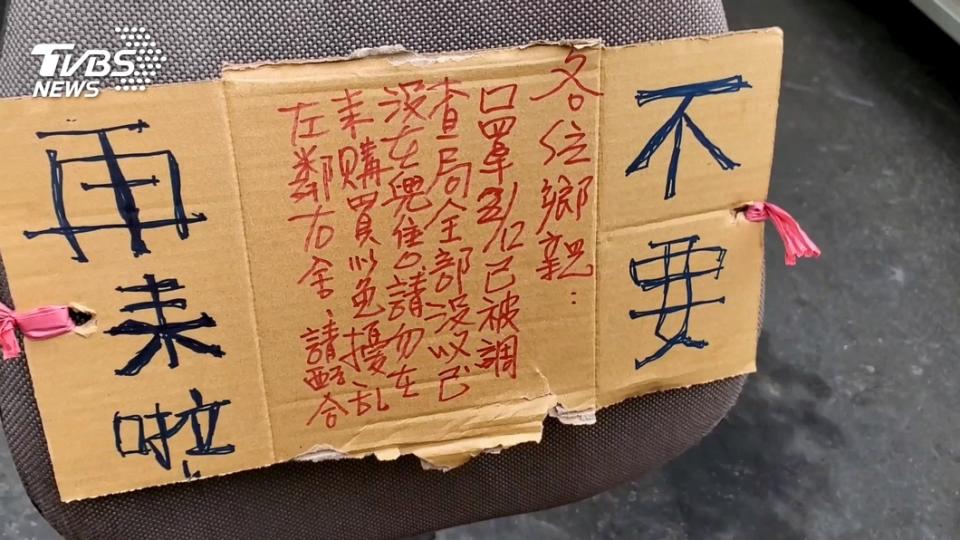 TVBS
NEWS
不要
各位鄉親：
口罩已被調
查局全部沒収己
沒在請勿在
来購買以免擾乱
左鄰右舍、請配合
再来啦